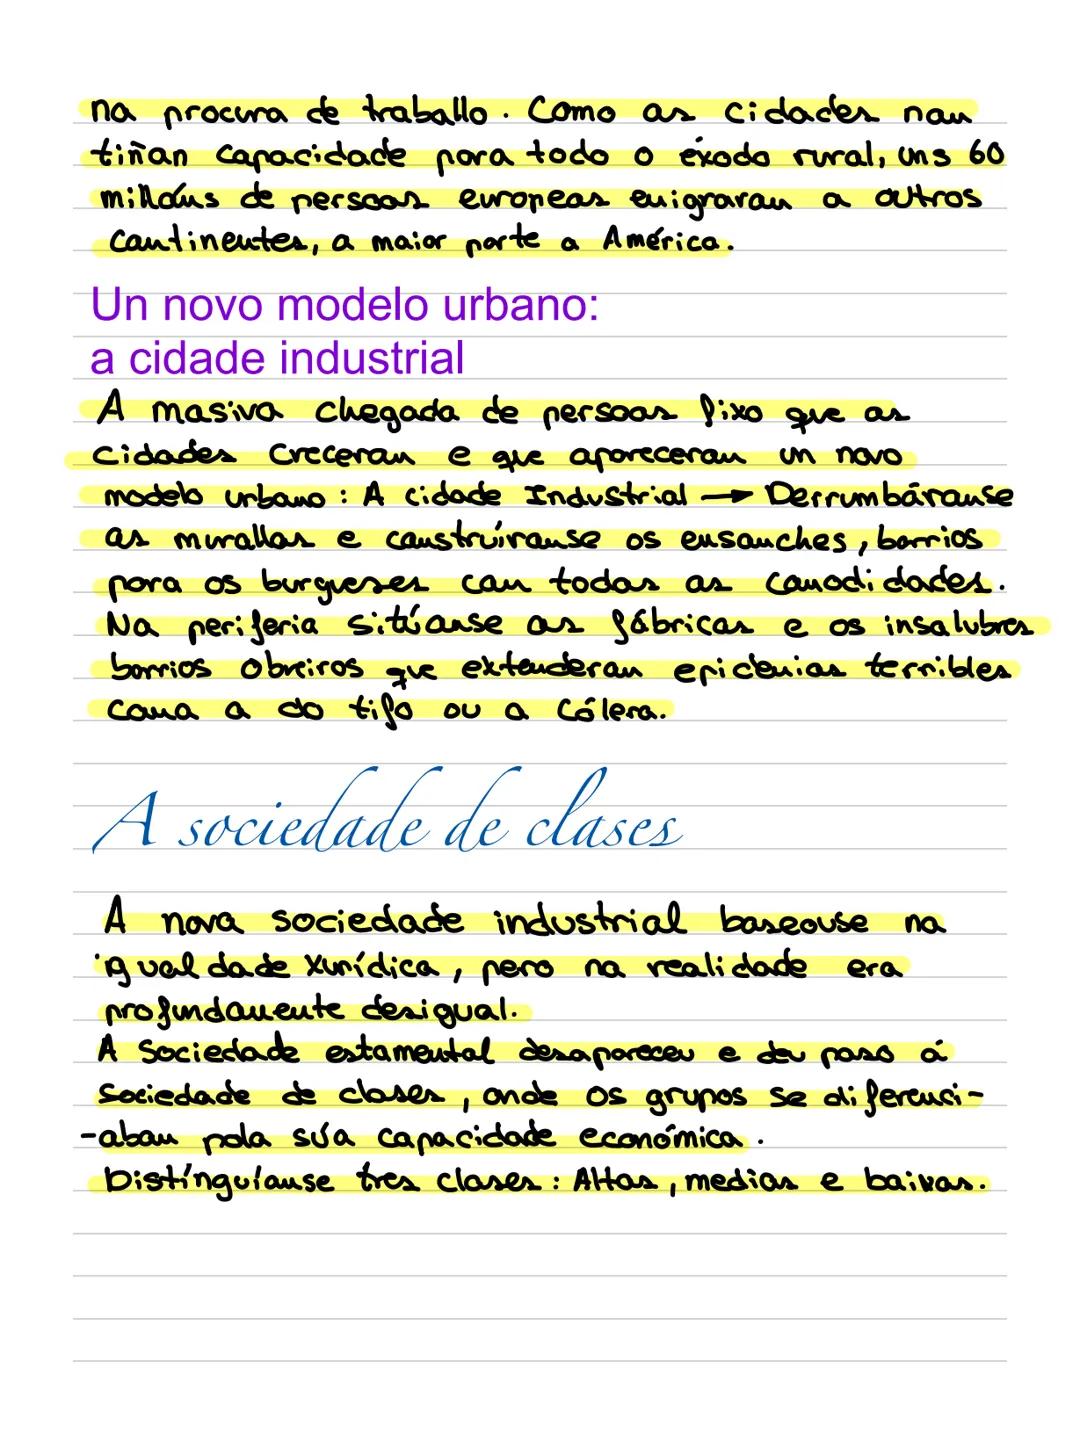 na procura de traballo. Como as cidades non
tiñan capacidade para todo o éxodo rural, uns 60
millóns de persoas europeas emigraran a outros
continentes, a maior parte a América.
Un novo modelo urbano:
a cidade industrial
A masiva chegada de persoas fixo que as
cidades creceran e que apareceran un novo
modelo urbano: A cidade Industrial → Derrumbáranse
as murallas e construíranse os ensanches, barrios
para os burgueses con todas as comodidades.
Na periferia sitúanse as fábricas e os insalubres
barrios obreiros que extenderan epidemias terribles
coma a do tifo ou a cólera.
A sociedade de clases
A nova sociedade industrial baseouse na
igualdade xurídica, pero na realidade era
profundamente desigual.
A Sociedade estamental desapareceu e deu paso á
sociedade de clases, onde os grupos se diferenci-
-aban pola súa capacidade económica.
Distínguíanse tres clases: Altas, medias e baixas.